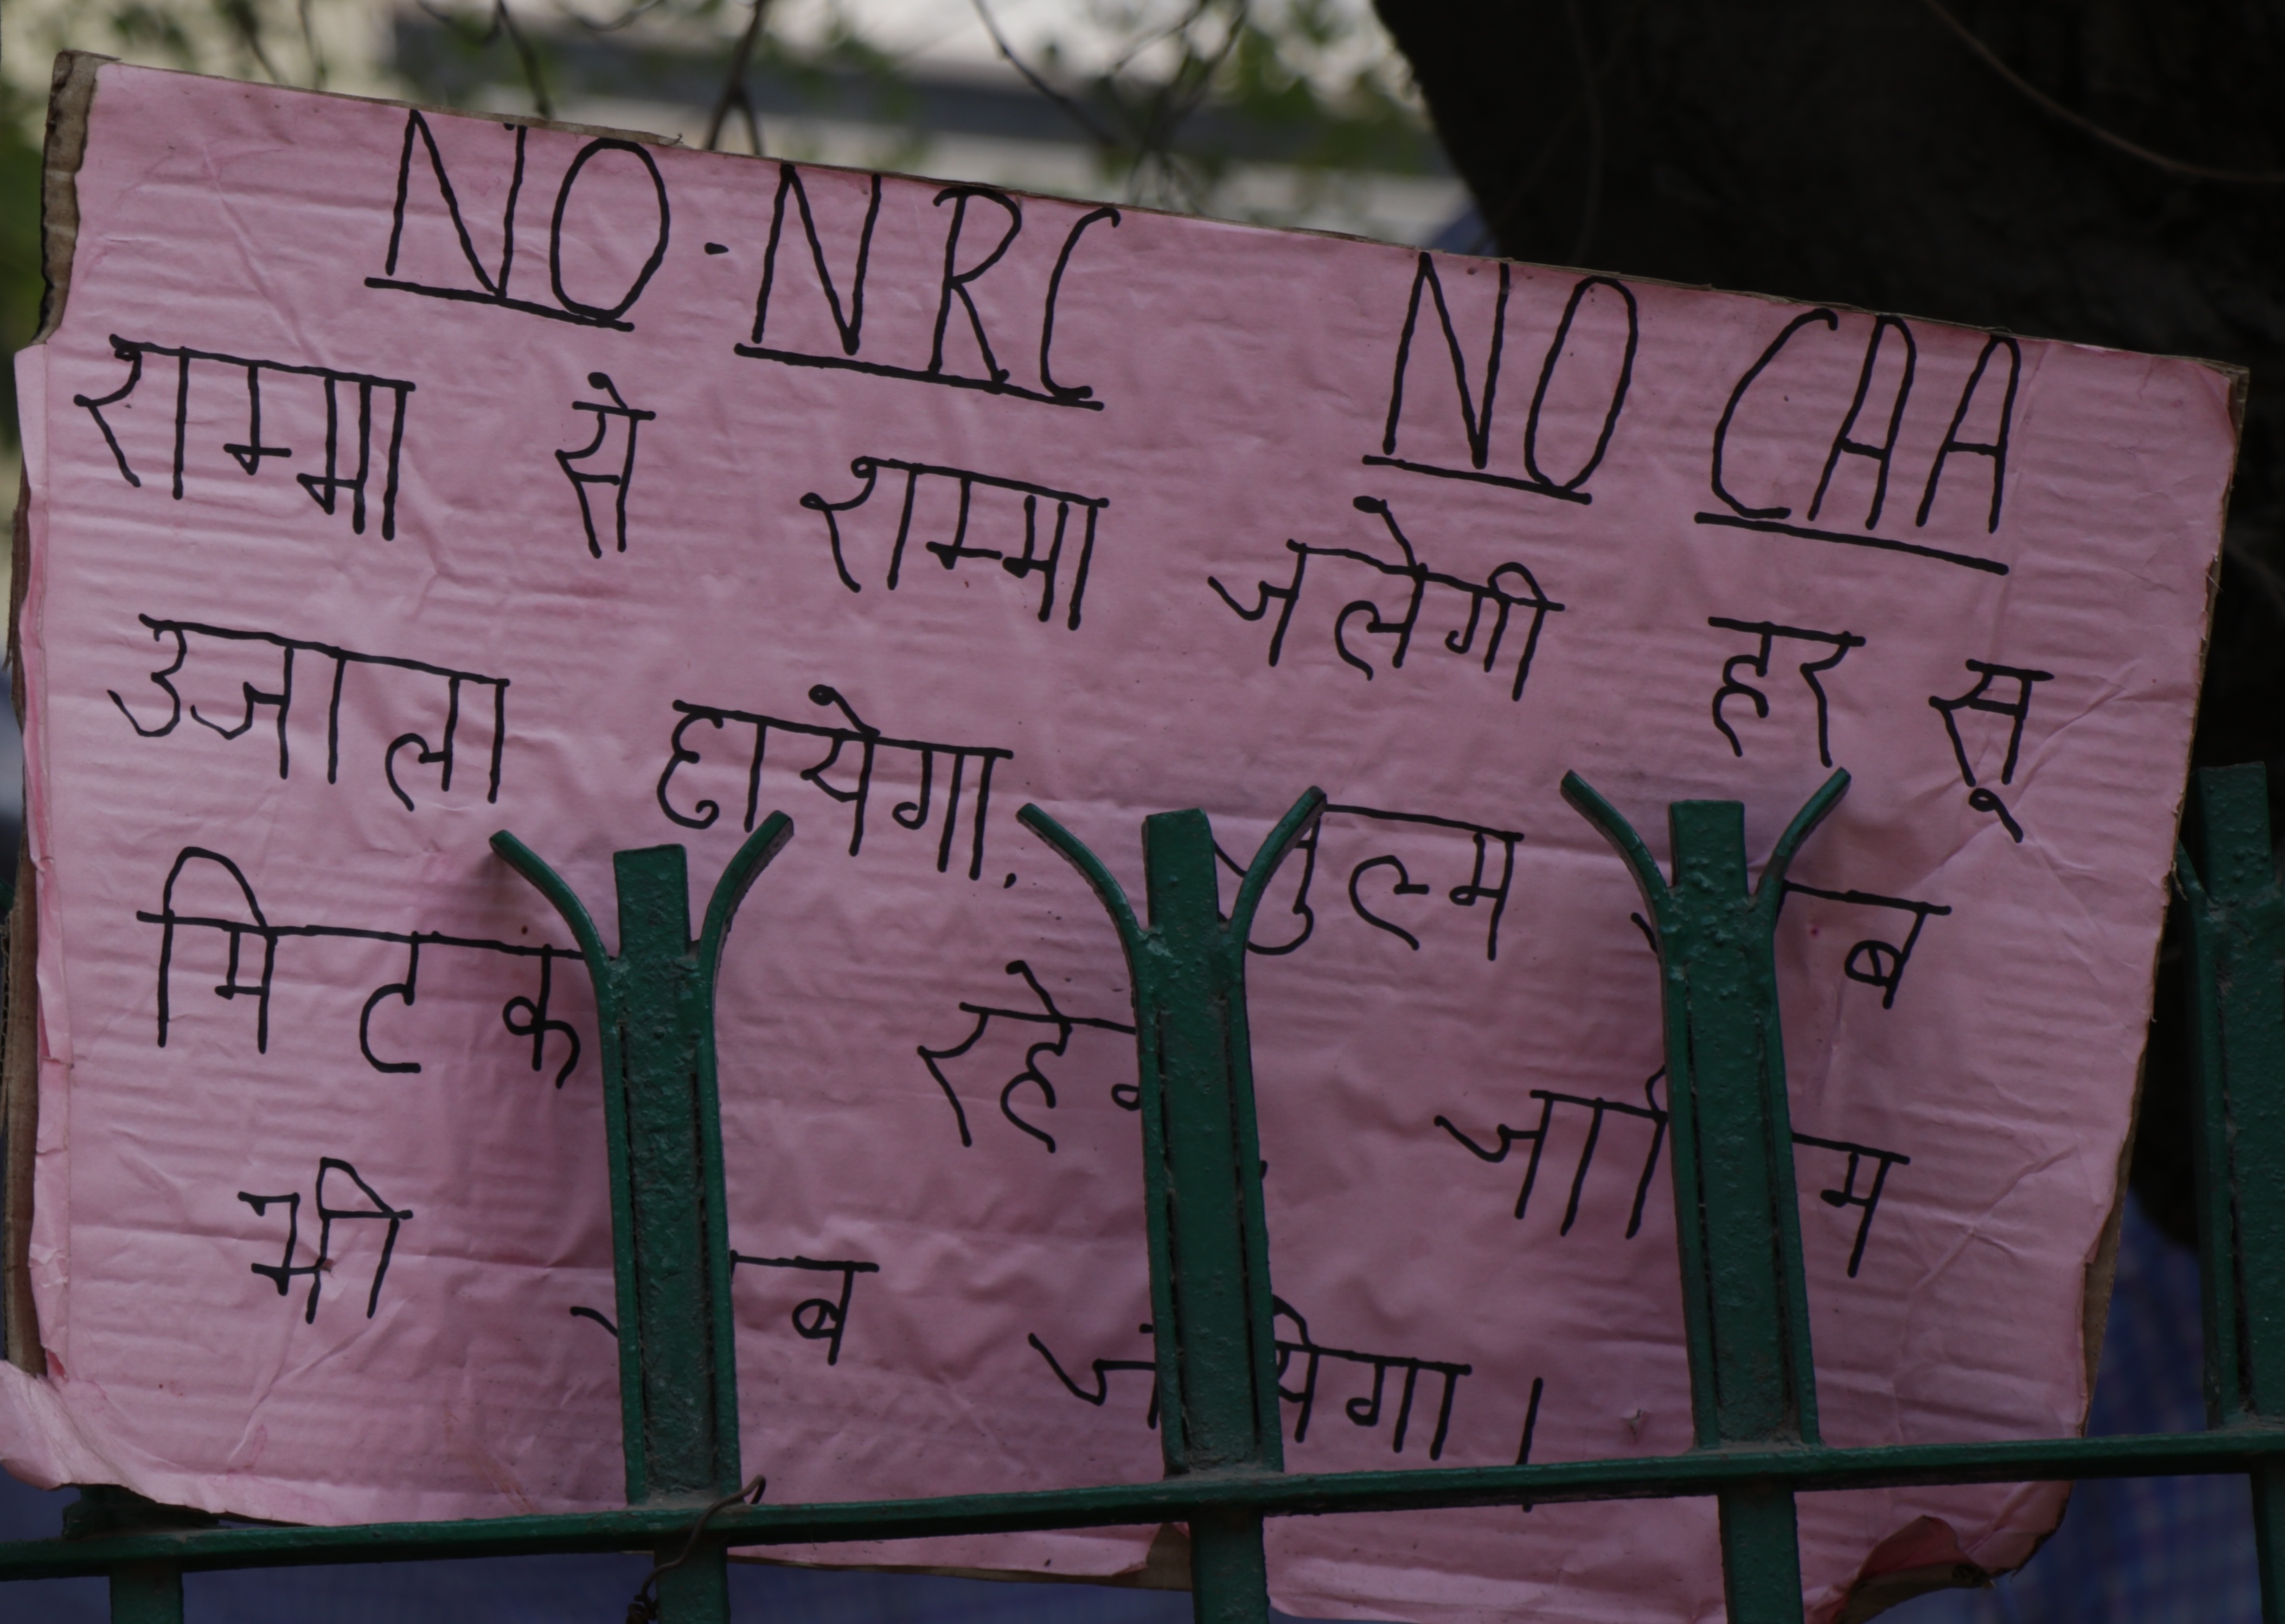 NO-NRC NO CAA
शम्मा से शम्मा जलेगी हर सू
उजाला छायेगा. जुल्म
मिटकर रहेगा जालिम
भी जायेगा।